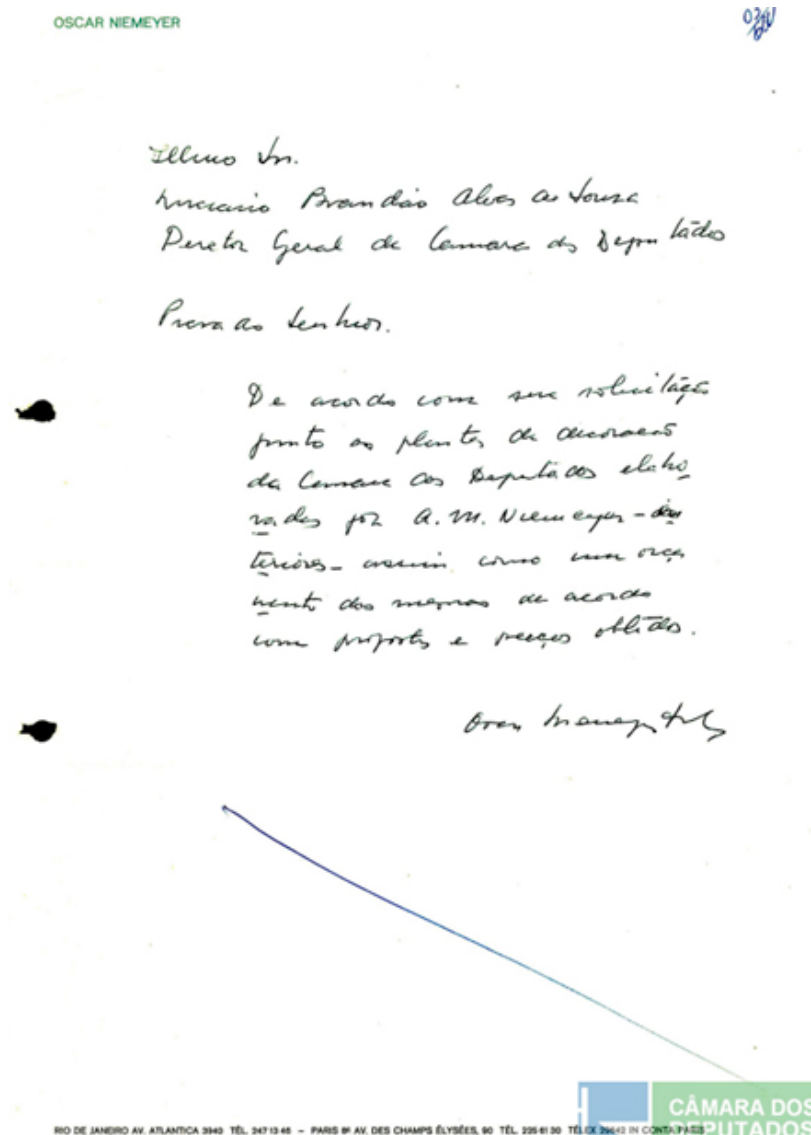 OSCAR NIEMEYER
Illmo Sr.
Luciano Brandão Alves de Souza
Diretor Geral da Camara dos Deputados
Prezado Senhor.
De acordo com sua solicitação
junto as plantas de decoração
da Camara dos Deputados elabo
radas por A.M. Niemeyer - in
teriores - assim como um orça
mento das mesmas de acordo
com propostas e preços obtidos.
Oscar Niemeyer
RIO DE JANEIRO AV. ATLANTICA 3940 TÉL. 247 13 46 – PARIS 8e AV. DES CHAMPS ÉLYSÉES, 90 TÉL. 225 61 30 TÉLEX 29642 IN CONTA PARIS
CÂMARA DOS
DEPUTADOS